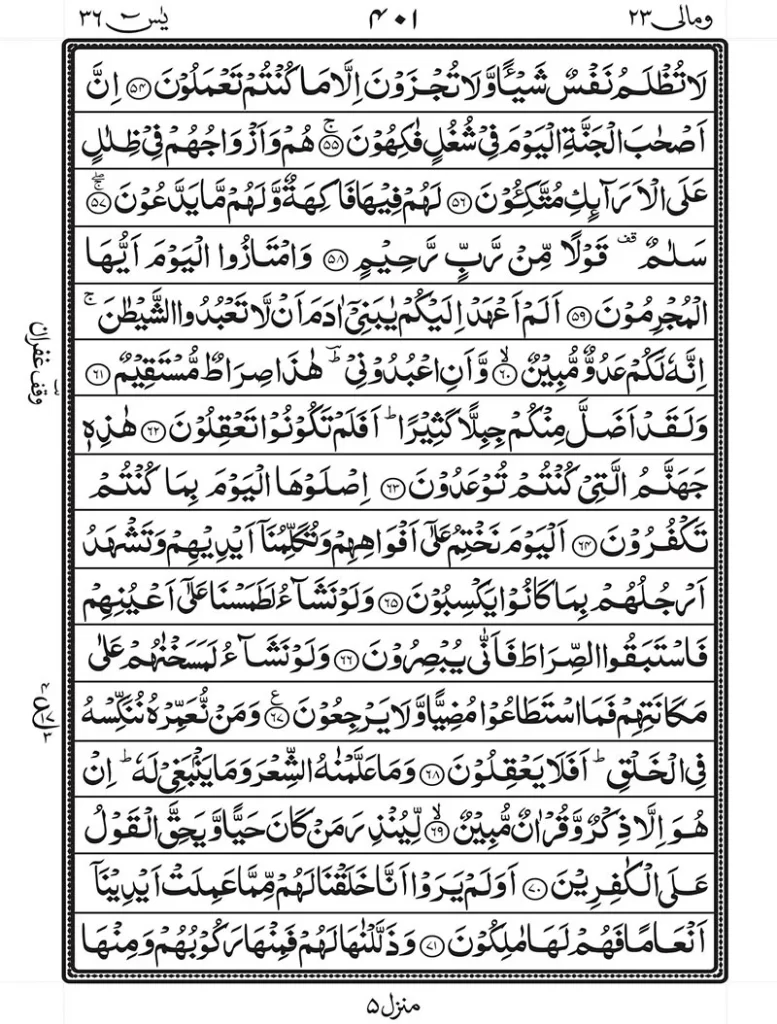 ومالی ٢٣ ٤٠١ یٰسٓ ٣٦
لَا تُظْلَمُ نَفْسٌ شَيْـًٔا وَّلَا تُجْزَوْنَ اِلَّا مَا كُنْتُمْ تَعْمَلُوْنَ ۝٥٤ اِنَّ
اَصْحٰبَ الْجَنَّةِ الْيَوْمَ فِيْ شُغُلٍ فٰكِهُوْنَ ۝٥٥ۚ هُمْ وَاَزْوَاجُهُمْ فِيْ ظِلٰلٍ
عَلَى الْاَرَآئِكِ مُتَّكِـُٔوْنَ ۝٥٦ لَهُمْ فِيْهَا فَاكِهَةٌ وَّلَهُمْ مَّا يَدَّعُوْنَ ۝٥٧ۚۖ
سَلٰمٌ ۣ قف قَوْلًا مِّنْ رَّبٍّ رَّحِيْمٍ ۝٥٨ وَامْتَازُوا الْيَوْمَ اَيُّهَا
الْمُجْرِمُوْنَ ۝٥٩ اَلَمْ اَعْهَدْ اِلَيْكُمْ يٰبَنِيْٓ اٰدَمَ اَنْ لَّا تَعْبُدُوا الشَّيْطٰنَ ۚ
اِنَّهٗ لَكُمْ عَدُوٌّ مُّبِيْنٌ ۝٦٠ۙ وَّاَنِ اعْبُدُوْنِيْ ؕ هٰذَا صِرَاطٌ مُّسْتَقِيْمٌ ۝٦١
وَلَقَدْ اَضَلَّ مِنْكُمْ جِبِلًّا كَثِيْرًا ؕ اَفَلَمْ تَكُوْنُوْا تَعْقِلُوْنَ ۝٦٢ هٰذِهٖ
جَهَنَّمُ الَّتِيْ كُنْتُمْ تُوْعَدُوْنَ ۝٦٣ اِصْلَوْهَا الْيَوْمَ بِمَا كُنْتُمْ
تَكْفُرُوْنَ ۝٦٤ اَلْيَوْمَ نَخْتِمُ عَلٰٓى اَفْوَاهِهِمْ وَتُكَلِّمُنَآ اَيْدِيْهِمْ وَتَشْهَدُ
اَرْجُلُهُمْ بِمَا كَانُوْا يَكْسِبُوْنَ ۝٦٥ وَلَوْ نَشَآءُ لَطَمَسْنَا عَلٰٓى اَعْيُنِهِمْ
فَاسْتَبَقُوا الصِّرَاطَ فَاَنّٰى يُبْصِرُوْنَ ۝٦٦ وَلَوْ نَشَآءُ لَمَسَخْنٰهُمْ عَلٰى
مَكَانَتِهِمْ فَمَا اسْتَطَاعُوْا مُضِيًّا وَّلَا يَرْجِعُوْنَ ۝٦٧ع وَمَنْ نُّعَمِّرْهُ نُنَكِّسْهُ
فِي الْخَلْقِ ؕ اَفَلَا يَعْقِلُوْنَ ۝٦٨ وَمَا عَلَّمْنٰهُ الشِّعْرَ وَمَا يَنْۢبَغِيْ لَهٗ ؕ اِنْ
هُوَ اِلَّا ذِكْرٌ وَّقُرْاٰنٌ مُّبِيْنٌ ۝٦٩ۙ لِّيُنْذِرَ مَنْ كَانَ حَيًّا وَّيَحِقَّ الْقَوْلُ
عَلَى الْكٰفِرِيْنَ ۝٧٠ اَوَلَمْ يَرَوْا اَنَّا خَلَقْنَا لَهُمْ مِّمَّا عَمِلَتْ اَيْدِيْنَآ
اَنْعَامًا فَهُمْ لَهَا مٰلِكُوْنَ ۝٧١ وَذَلَّلْنٰهَا لَهُمْ فَمِنْهَا رَكُوْبُهُمْ وَمِنْهَا
وقف غفران
منزل ٥